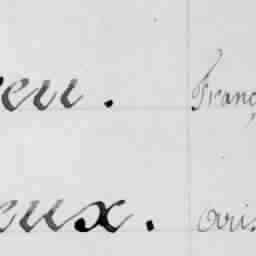 eu. Franç
eux. aris